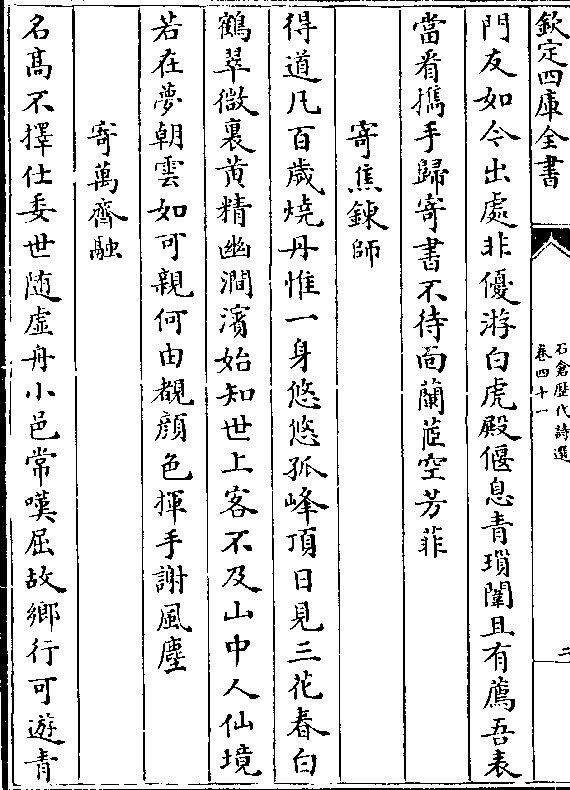 欽定四庫全書
石倉歴代詩選
卷四十一
三
門友如今出處非優游白虎殿偃息青瑣闈且有薦吾表
當看攜手歸寄書不待面蘭茝空芳菲
寄焦鍊師
得道凡百歲燒丹惟一身悠悠孤峰頂日見三花春白
鶴翠微裏黄精幽澗濱始知世上客不及山中人仙境
若在夢朝雲如可親何由覩顔色揮手謝風塵
寄萬齊融
名髙不擇仕委世随虚舟小邑常嘆屈故鄉行可遊青